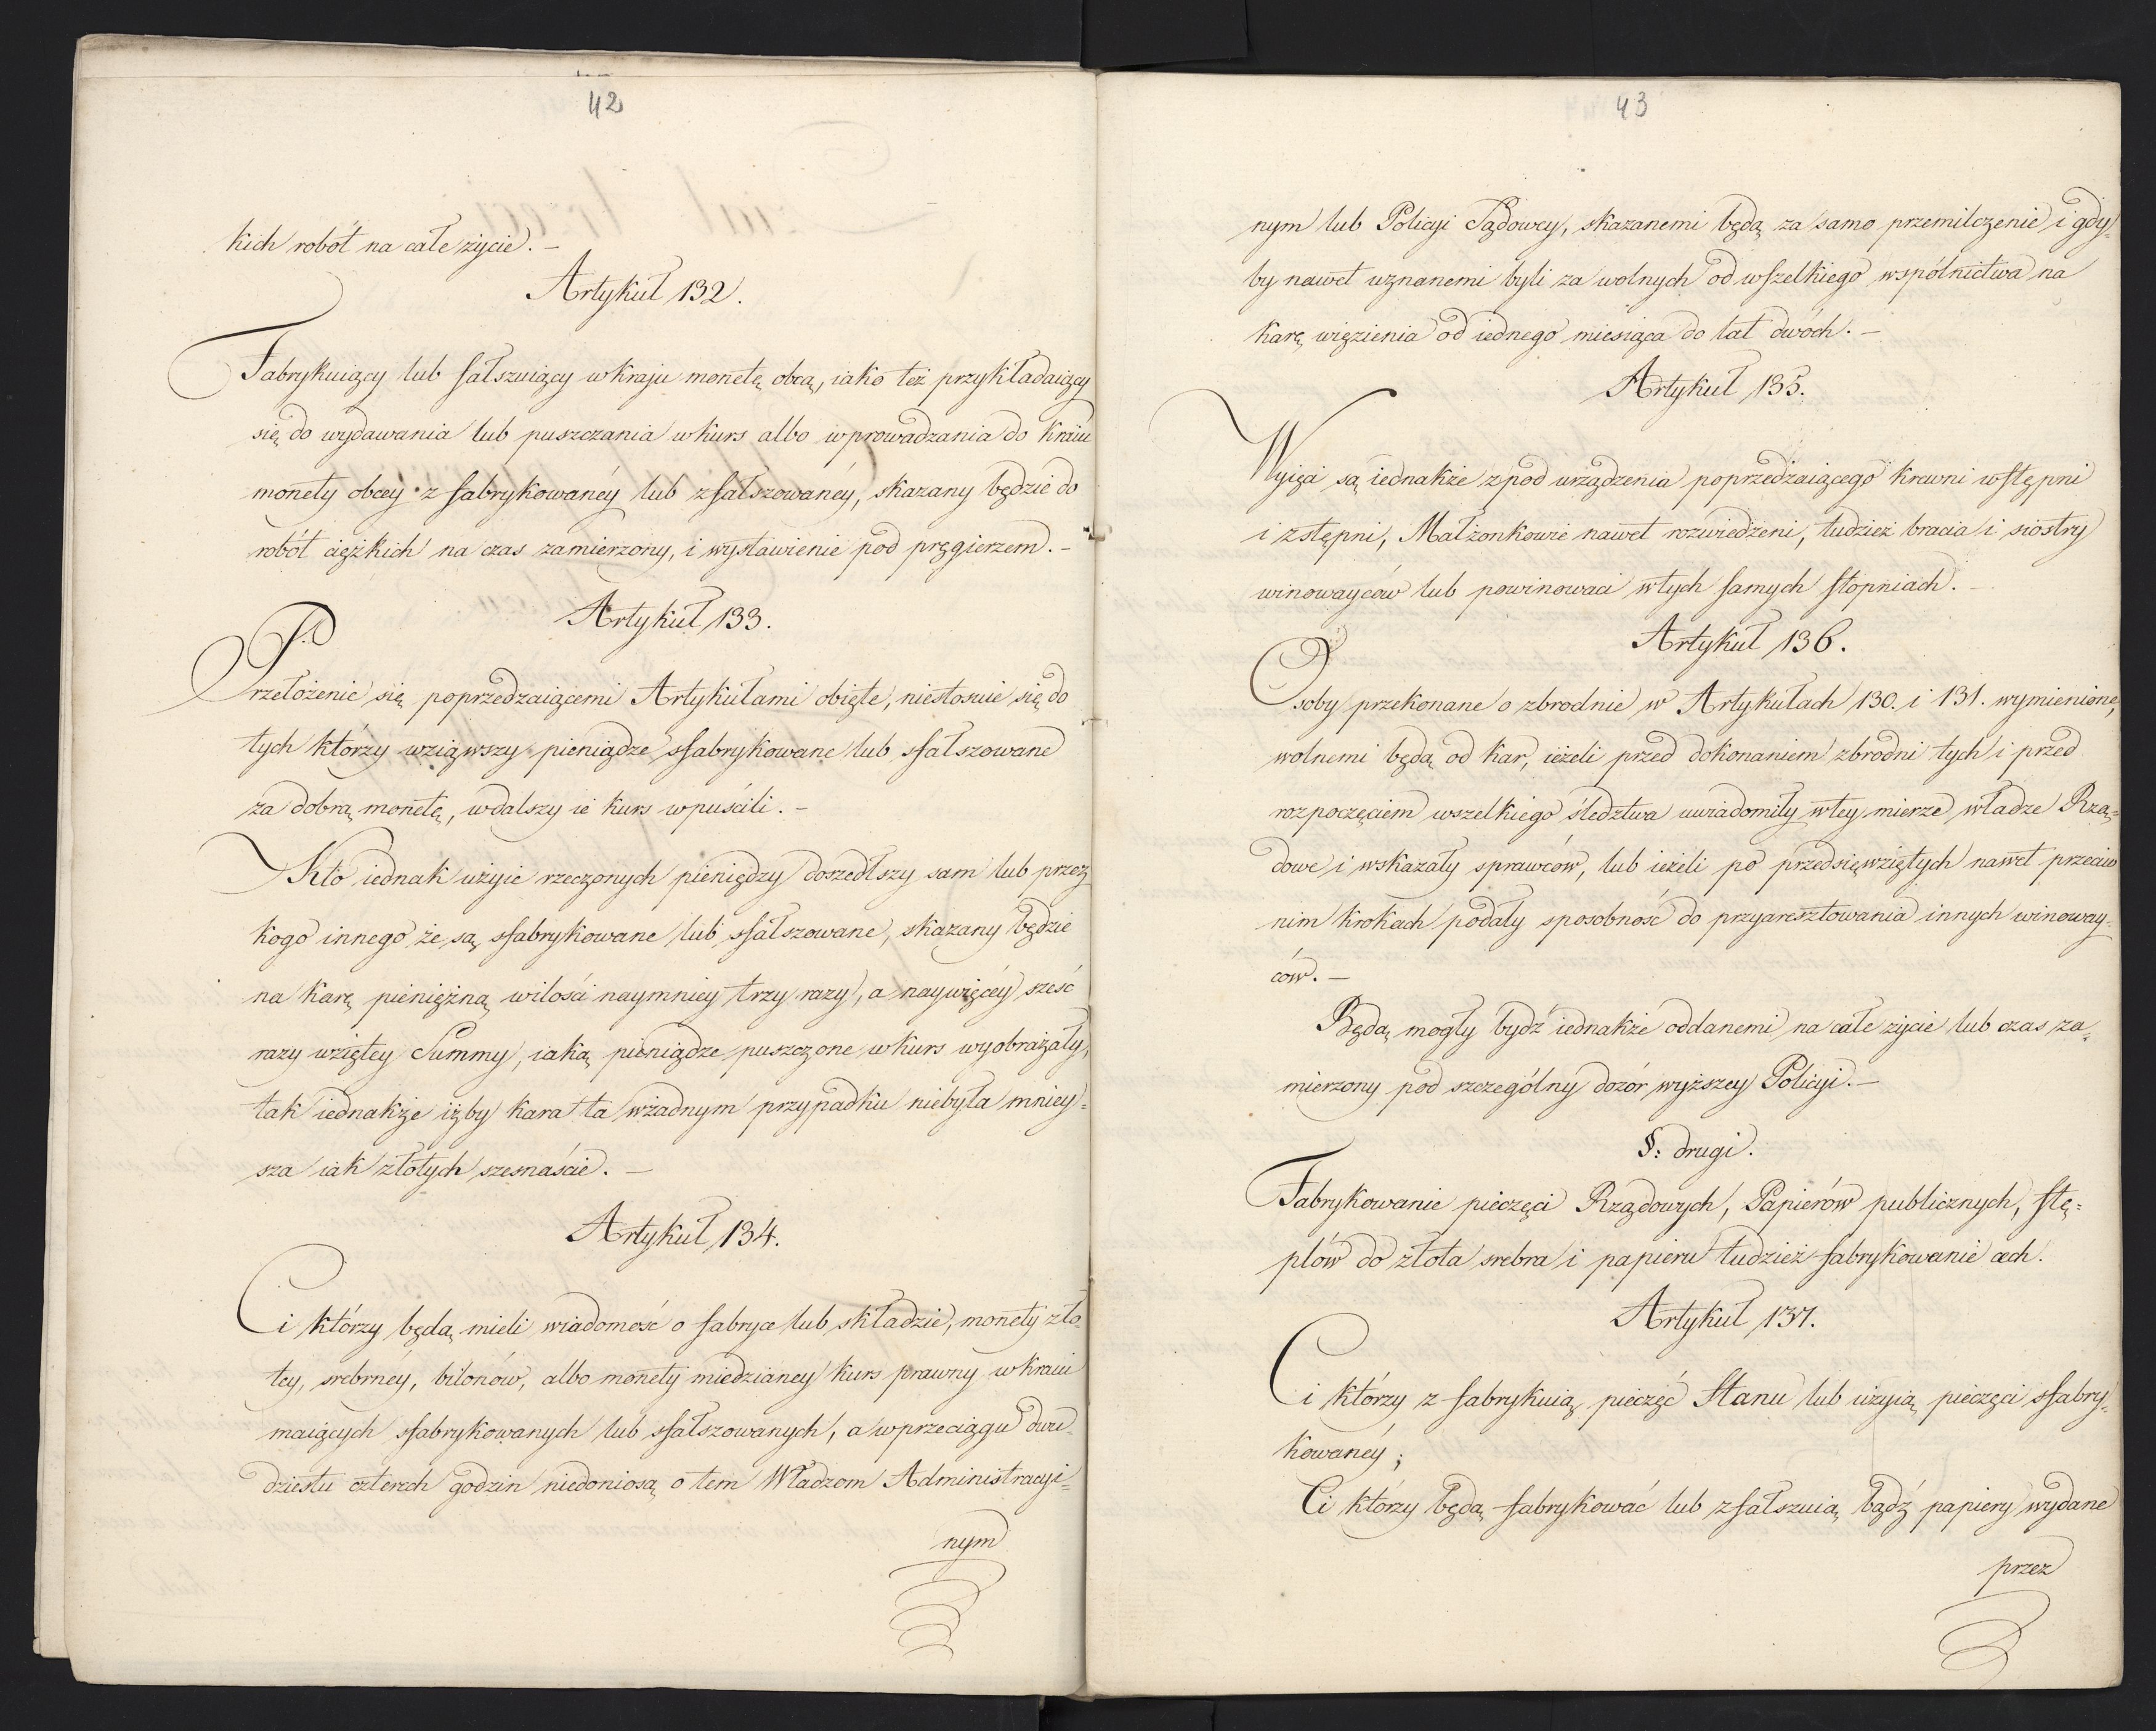 42
kich robót na całe życie. –
Artykuł 132.
Fabrykuiący lub fałszuiący w kraju monetę obcą, iako też przykładaiący
się do wydawania lub puszczania w kurs albo wprowadzania do kraiu
monety obcey z fabrykowanéy lub zfałszowanéy, skazany będzie do
robót ciężkich na czas zamierzony, i wystawienie pod pręgierzem. –
Artykuł 133.
Przełożenie się poprzedzaiącemi Artykułami obięte, niestosuie się do
tych którzy wziąwszy pieniądze sfabrykowane lub sfałszowane
za dobrą monetę, w dalszy ie kurs wpuścili. –
Kto iednak użyie rzeczonych pieniędzy doszedłszy sam lub przez
kogo innego że są sfabrykowane lub sfałszowane, skazany będzie
na karę pieniężną wilości naymniey trzy razy, a naywięcéy sześć
razy wziętey Summy, iaką pieniądze puszczone w kurs wyobrażały,
tak iednakże iżby kara ta w żadnym przypadku niebyła mniey=
sza iak złotych szesnaście. –
Artykuł 134.
Ci którzy będą mieli wiadomość o fabryce lub składzie, monety zło=
tey, srebrnéy, bilonów, albo monety miedzianey kurs prawny w kraiu
maiących sfabrykowanych lub sfałszowanych, a w przeciągu dwu=
dziestu czterech godzin niedoniosą o tem Władzom Administracyi=
nym
43
nym lub Policyi Sądowey, skazanemi będą za samo przemilczenie i gdy=
by nawet uznanemi byli za wolnych od wszelkiego wspólnictwa na
karę więzienia od iednego miesiąca do lat dwóch. –
Artykuł 135.
Wyięci są iednakże z pod urządzenia poprzedzaiącego krewni wstępni
i zstępni, Małżonkowie nawet rozwiedzeni, tudzież bracia i siostry
winowayców lub powinowaci w tych samych stopniach. –
Artykuł 136.
Osoby przekonane o zbrodnie w Artykułach 130. i 131. wymienione,
wolnemi będą od kar, ieżeli przed dokonaniem zbrodni tych i przed
rozpoczęciem wszelkiego śledztwa uwiadomiły w tey mierze władze Rzą=
dowe i wskazały sprawców, lub ieżeli po przedsięwziętych nawet przeciw
nim krokach podały sposobność do przyaresztowania innych winoway=
ców. –
Będą mogły bydź iednakże oddanemi na całe życie lub czas za=
mierzony pod szczególny dozór wyższey Policyi. –
§: drugi.
Fabrykowanie pieczęci Rządowych, Papierów publicznych, stę=
plów do złota srebra i papieru tudzież fabrykowanie cech.
Artykuł 137.
Ci którzy z fabrykuią pieczęć Stanu lub użyią pieczęci sfabry=
kowanéy;
Ci którzy będą fabrykować lub zfałszuią bądź papiery wydane
przez